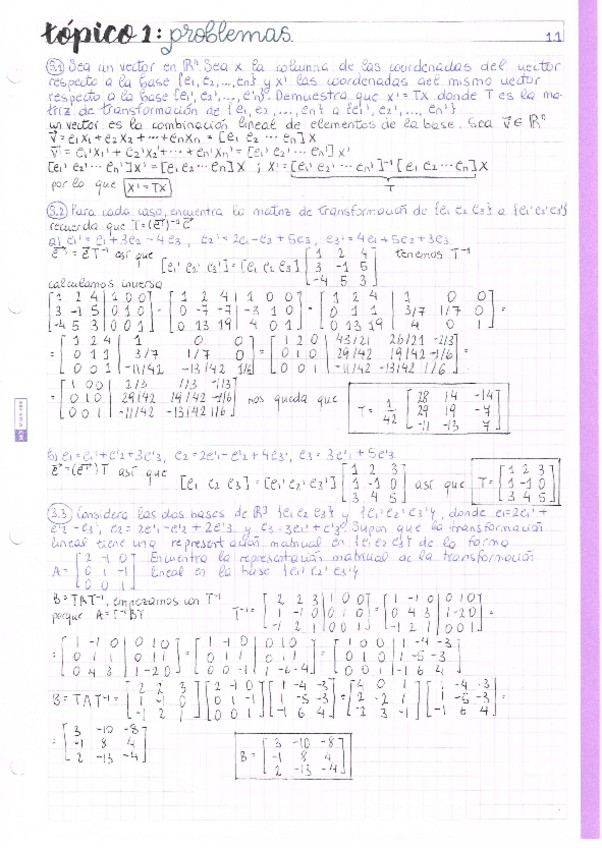 tópico 1: problemas
1.1
3.1 Sea un vector en ℝⁿ. Sea x la columna de las coordenadas del vector
respecto a la base {e₁, e₂, ..., eₙ} y x' las coordenadas del mismo vector
respecto a la base {e₁', e₂', ..., eₙ'}. Demuestra que x' = Tx donde T es la ma-
triz de transformación de {e₁, e₂, ..., eₙ} a {e₁', e₂', ..., eₙ'}
un vector es la combinación lineal de elementos de la base. Sea v⃗ ∈ ℝⁿ
v⃗ = e₁x₁ + e₂x₂ + ... + eₙxₙ = [e₁ e₂ ... eₙ] x
v⃗ = e₁'x₁' + e₂'x₂' + ... + eₙ'xₙ' = [e₁' e₂' ... eₙ'] x'
[e₁' e₂' ... eₙ'] x' = [e₁ e₂ ... eₙ] x ; x' = [e₁' e₂' ... eₙ']⁻¹ [e₁ e₂ ... eₙ] x
T
por lo que x' = Tx
3.2 Para cada caso, encuentra la matriz de transformación de {e₁ e₂ e₃} a {e₁' e₂' e₃'}
recuerda que T = (e⃗')⁻¹ e⃗
a) e₁' = e₁ + 3e₂ - 4e₃, e₂' = 2e₁ - e₂ + 5e₃, e₃' = 4e₁ + 5e₂ + 3e₃
e⃗' = e⃗ T⁻¹ así que [e₁' e₂' e₃'] = [e₁ e₂ e₃] [1 2 4 / 3 -1 5 / -4 5 3] tenemos T⁻¹
calculamos inversa
[1 2 4 | 1 0 0 / 3 -1 5 | 0 1 0 / -4 5 3 | 0 0 1] = [1 2 4 | 1 0 0 / 0 -7 -7 | -3 1 0 / 0 13 19 | 4 0 1] = [1 2 4 | 1 0 0 / 0 1 1 | 3/7 1/7 0 / 0 13 19 | 4 0 1] =
= [1 2 4 | 1 0 0 / 0 1 1 | 3/7 1/7 0 / 0 0 1 | -11/42 -13/42 1/6] = [1 2 0 | 43/21 26/21 -2/3 / 0 1 0 | 29/42 19/42 -1/6 / 0 0 1 | -11/42 -13/42 1/6] =
= [1 0 0 | 2/3 1/3 -1/3 / 0 1 0 | 29/42 19/42 -1/6 / 0 0 1 | -11/42 -13/42 1/6] nos queda que T = 1/42 [28 14 -14 / 29 19 -7 / -11 -13 7]
b) e₁ = e₁' + e₂' + 3e₃', e₂ = 2e₁' - e₂' + 4e₃', e₃ = 3e₁' + 5e₃'
e⃗ = (e⃗') T así que [e₁ e₂ e₃] = [e₁' e₂' e₃'] [1 2 3 / 1 -1 0 / 3 4 5] así que T = [1 2 3 / 1 -1 0 / 3 4 5]
3.3 Considera las dos bases de ℝ³ {e₁ e₂ e₃} y {e₁' e₂' e₃'}, donde e₁ = 2e₁' +
e₂' - e₃', e₂ = 2e₁' - e₂' + 2e₃' y e₃ = 3e₁' + e₃'. Supón que la transformación
lineal tiene una representación matricial en {e₁ e₂ e₃} de la forma
A = [2 -1 0 / 0 1 -1 / 0 0 1] Encuentra la representación matricial de la transformación
lineal en la base {e₁' e₂' e₃'}
B = TAT⁻¹, empezamos con T⁻¹
porque A = T⁻¹BT
T⁻¹ = [2 2 3 | 1 0 0 / 1 -1 0 | 0 1 0 / -1 2 1 | 0 0 1] = [1 -1 0 | 0 1 0 / 0 4 3 | 1 -2 0 / -1 2 1 | 0 0 1] =
= [1 -1 0 | 0 1 0 / 0 1 1 | 0 1 1 / 0 4 3 | 1 -2 0] = [1 -1 0 | 0 1 0 / 0 1 1 | 0 1 1 / 0 0 -1 | 1 -6 -4] = [1 0 0 | 1 -4 -3 / 0 1 0 | 1 -5 -3 / 0 0 1 | -1 6 4]
B = TAT⁻¹ = [2 2 3 / 1 -1 0 / -1 2 1] [2 -1 0 / 0 1 -1 / 0 0 1] [1 -4 -3 / 1 -5 -3 / -1 6 4] = [4 0 1 / 2 -2 1 / -2 3 -1] [1 -4 -3 / 1 -5 -3 / -1 6 4] =
= [3 -10 -8 / -1 8 4 / 2 -13 -4]
B = [3 -10 -8 / -1 8 4 / 2 -13 -4]